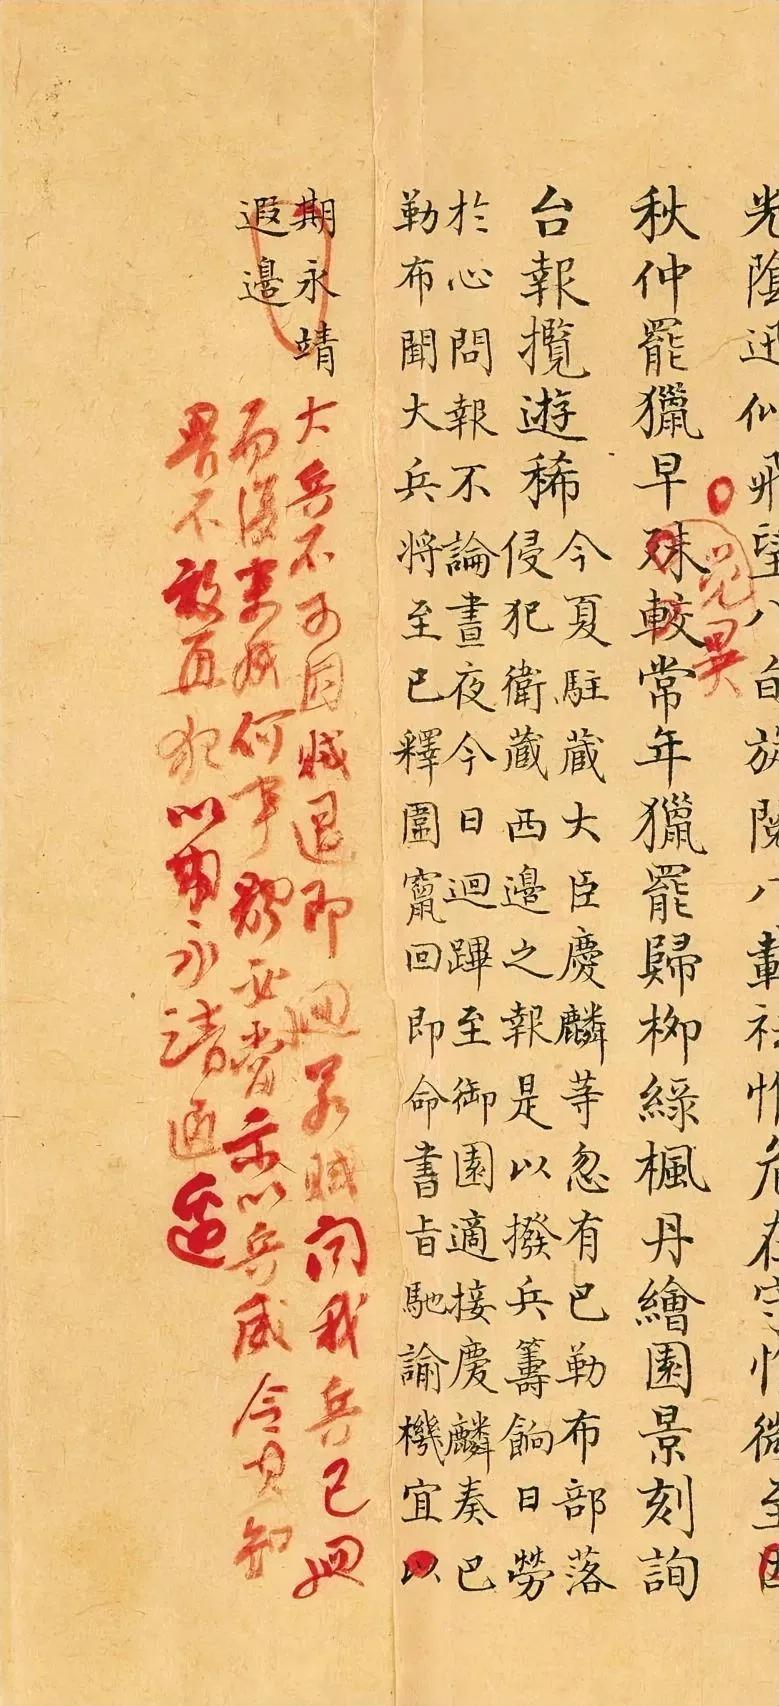 光陰迅似飛望八旋八載惟危在惟微至因
秋仲罷獵早殊較常年獵罷歸柳綠楓丹繪園景刻詢
覺異
台報攬遊稀
今夏駐藏大臣慶麟等忽有巴勒布部落
侵犯衛藏西邊之報是以撥兵籌餉日勞
於心問報不論晝夜今日迴蹕至御園適接慶麟奏巴
勒布聞大兵將至已釋圍竄回即命書旨馳諭機宜以
期永靖
遐邊
大兵不可因賊退即迴若賊問我兵已迴
而復來成何事必當示以兵威令其知
畏不敢再犯以期永靖遐邊